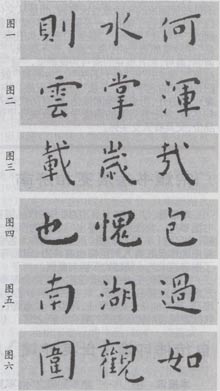 图一 則 水 何
图二 雲 掌 渾
图三 載 歲 哉
图四 也 愧 包
图五 南 湖 過
图六 圍 觀 如